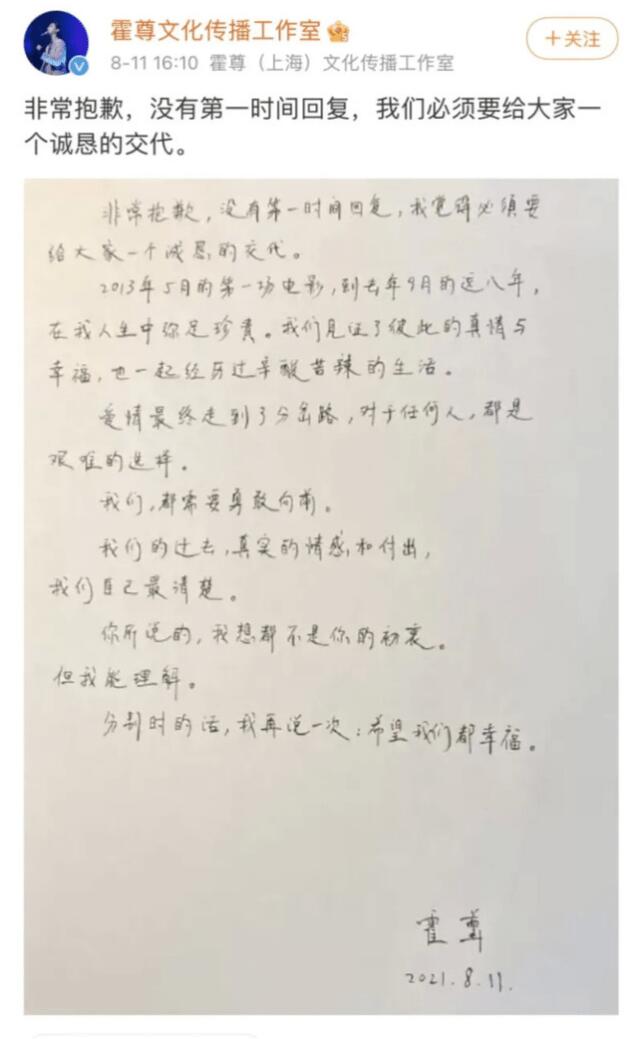 霍尊文化传播工作室
8-11 16:10 霍尊（上海）文化传播工作室
+关注
非常抱歉，没有第一时间回复，我们必须要给大家一
个诚恳的交代。
非常抱歉，没有第一时间回复，我觉得必须要
给大家一个诚恳的交代。
2013年5月的第一场电影，到去年9月的这八年，
在我人生中弥足珍贵。我们见证了彼此的真情与
幸福，也一起经历过辛酸苦辣的生活。
爱情最终走到了分岔路，对于任何人，都是
艰难的选择。
我们，都需要勇敢向前。
我们的过去，真实的情感和付出，
我们自己最清楚。
你所说的，我想都不是你的初衷。
但我能理解。
分别时的话，我再说一次：希望我们都幸福。
霍尊
2021.8.11.